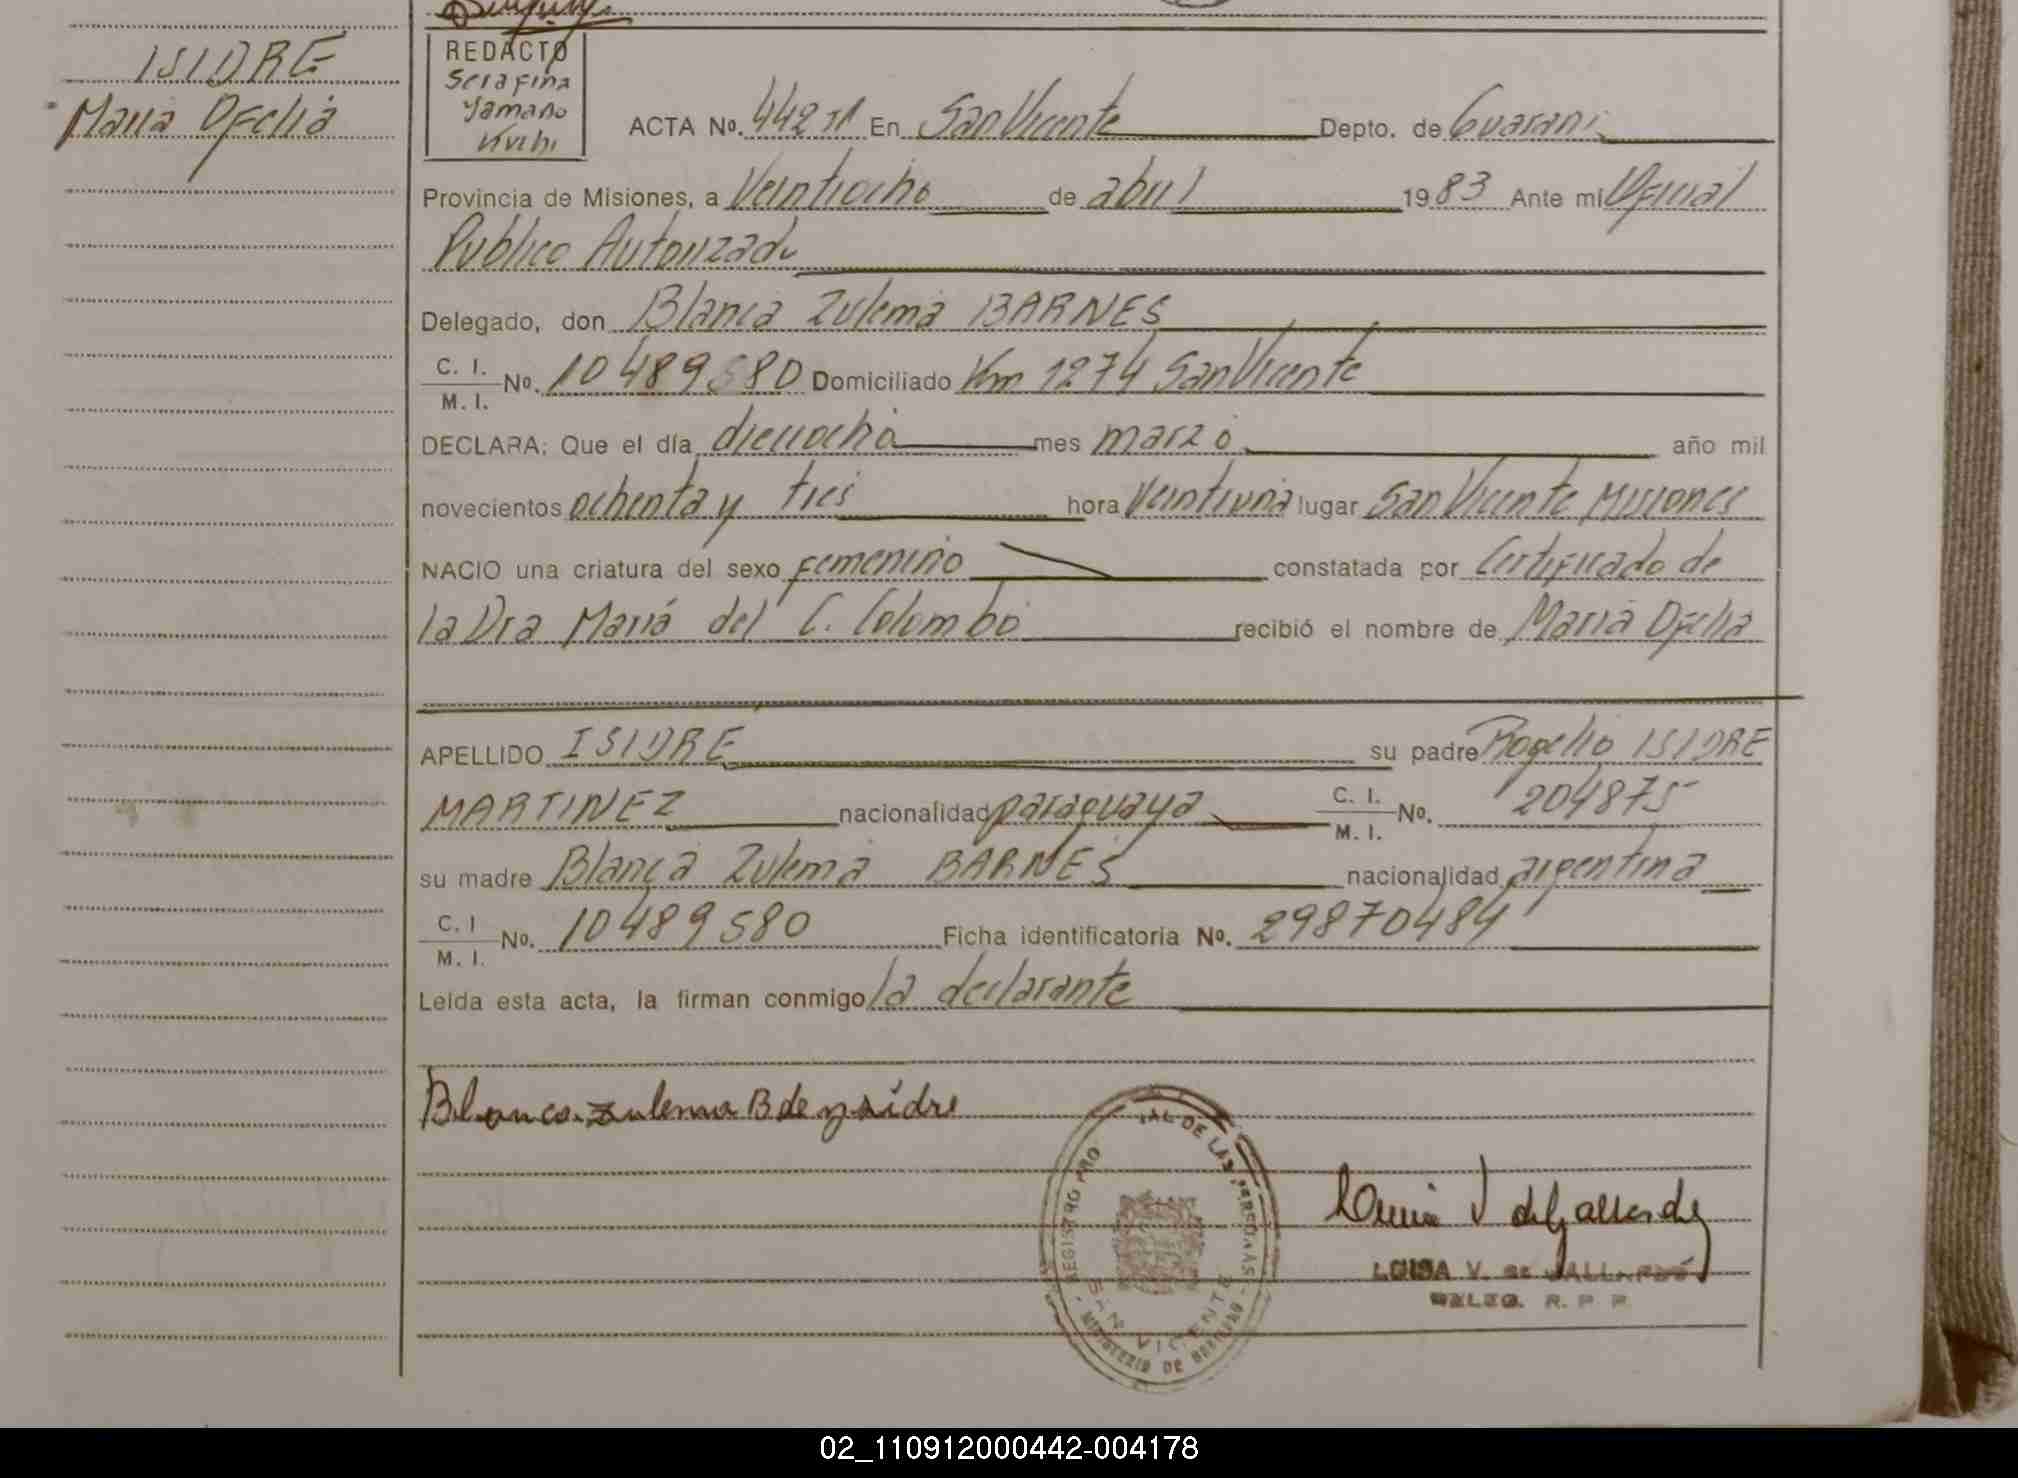 ISIDRE
Maria Ofelia
REDACTO
Serafina
Yamano
Kivchi
ACTA No. 442 En San Vicente Depto. de Guarani
Provincia de Misiones, a Veintiocho de abril 1983 Ante mi Oficial
Publico Autorizado
Delegado, don Blanca Zulema BARNES
C. I.
M. I. No. 10489580 Domiciliado Km 1274 San Vicente
DECLARA; Que el día dieciocho mes marzo año mil
novecientos ochenta y tres hora Veintiuna lugar San Vicente Misiones
NACIO una criatura del sexo femenino constatada por Certificado de
la Dra Maria del C. Colombo recibió el nombre de Maria Ofelia
APELLIDO ISIDRE su padre Rogelio ISIDRE
MARTINEZ nacionalidad paraguaya C. I. M. I. No. 204875
su madre Blanca Zulema BARNES nacionalidad argentina
C. I
M. I. No. 10489580 Ficha identificatoria No. 29870484
Leida esta acta, la firman conmigo la declarante
Blanca zulema B de ysidre
REGISTRO PRO IAL DE LAS PERSONAS
SAN VICENTE
MINISTERIO DE GOBIERNO
LUISA V. de GALLARDO
DELEG. R. P. P.
02_110912000442-004178